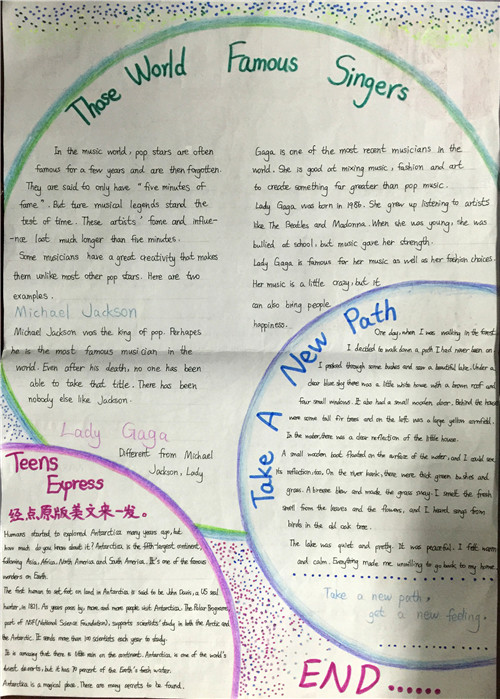 Those World Famous Singers
In the music world, pop stars are often
famous for a few years and are then forgotten.
They are said to only have "five minutes of
fame". But ture musical legends stand the
test of time. These artists' fame and influe-
-nce last much longer than five minutes.
Some musicians have a great creativity that makes
them unlike most other pop stars. Here are two
examples.
Michael Jackson
Michael Jackson was the king of pop. Perhapes
he is the most famous musician in the
world. Even after his death, no one has been
able to take that title. There has been
nobody else like Jackson.
Lady Gaga
Different from Michael
Jackson, Lady
Gaga is one of the most recent musicians in the
world. She is good at mixing music, fashion and art
to create something far greater than pop music.
Lady Gaga was born in 1986. She grew up listening to artists
like The Beatles and Madonna. When she was young, she was
bullied at school, but music gave her strength.
Lady Gaga is famous for her music as well as her fashion choices.
Her music is a little crazy, but it
can also bring people
happiness.
Take A New Path
One day, when I was walking in the forest
I decided to walk down a path I had never been on
I pushed through some bushes and saw a beautiful lake. Under a
clear blue sky there was a little white house with a brown roof and
four small windows. It also had a small wooden door. Behind the house
were some tall fir trees and on the left was a large yellow cornfield.
In the water, there was a clear reflection of the little house.
A small wooden boat floated on the surface of the water, and I could see
its reflection, too. On the river bank, there were thick green bushes and
grass. A breeze blew and made the grass sway. I smelt the fresh
smell from the leaves and the flowers, and I heard songs from
birds in the old oak tree.
The lake was quiet and pretty. It was peaceful. I felt warm
and calm. Everything made me unwilling to go back to my home.
Take a new path,
get a new feeling.
Teens
Express
经点原版美文来一发。
Humans started to explored Antarctica many years ago, but
how much do you know about it? Antarctica is the fifth-largest continent,
following Asia, Africa, North America and South America. It's one of the famous
wonders on Earth.
The first human to set foot on land in Antarctica is said to be John Davis, a US seal
hunter, in 1821. As years pass by, more and more people visit Antarctica. The Polar Programs,
part of NSF (National Science Foundation), supports scientists' study in both the Arctic and
the Antarctic. It sends more than 700 scientists each year to study.
It is amazing that there is little rain on the continent. Antarctica is one of the world's
driest deserts, but it has 70 percent of the Earth's fresh water.
Antarctica is a magical place. There are many secrets to be found.
END......